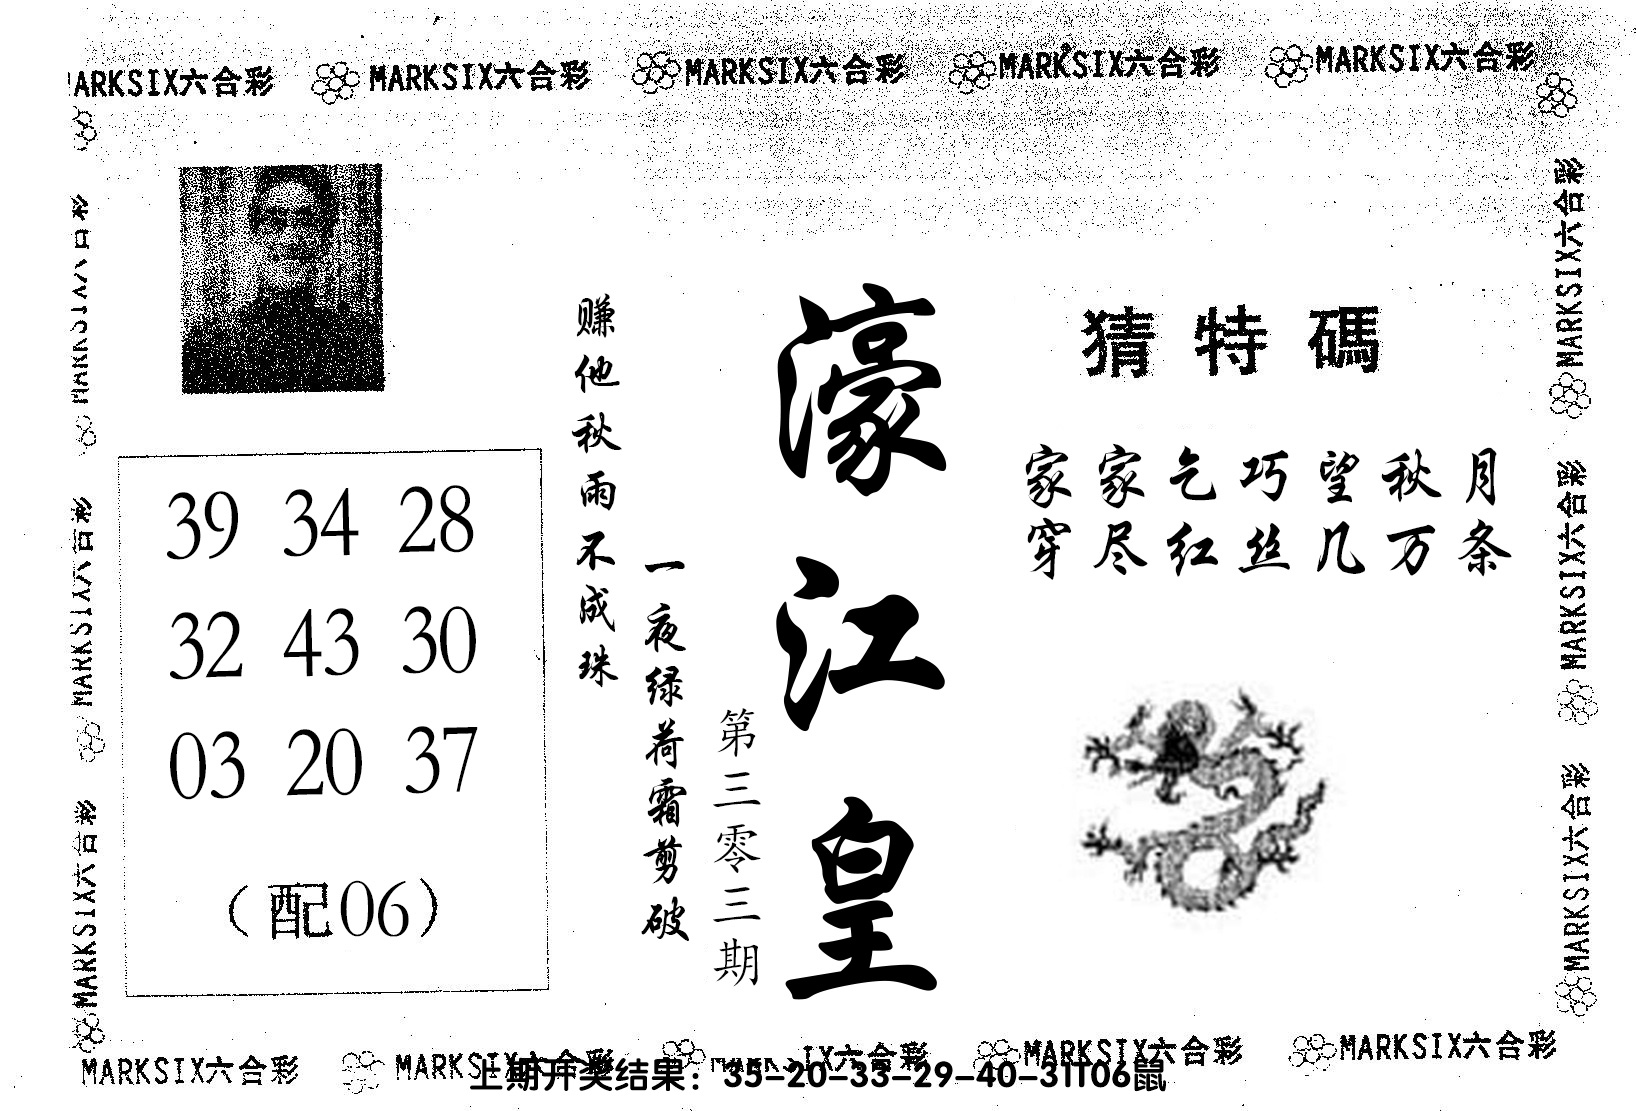 MARKSIX六合彩 MARKSIX六合彩 MARKSIX六合彩 MARKSIX六合彩 MARKSIX六合彩
猜特碼
家家乞巧望秋月
穿尽红丝几万条
濠江皇
第三零三期
一夜绿荷霜剪破
赚他秋雨不成珠
39 34 28
32 43 30
03 20 37
（配06）
MARKSIX六合彩
MARKSIX六合彩
MARKSIX六合彩
MARKSIX六合彩
MARKSIX六合彩
MARKSIX六合彩
MARKSIX六合彩 MARKSIX六合彩 MARKSIX六合彩 MARKSIX六合彩 MARKSIX六合彩
上期开奖结果：35-20-33-29-40-31T06鼠